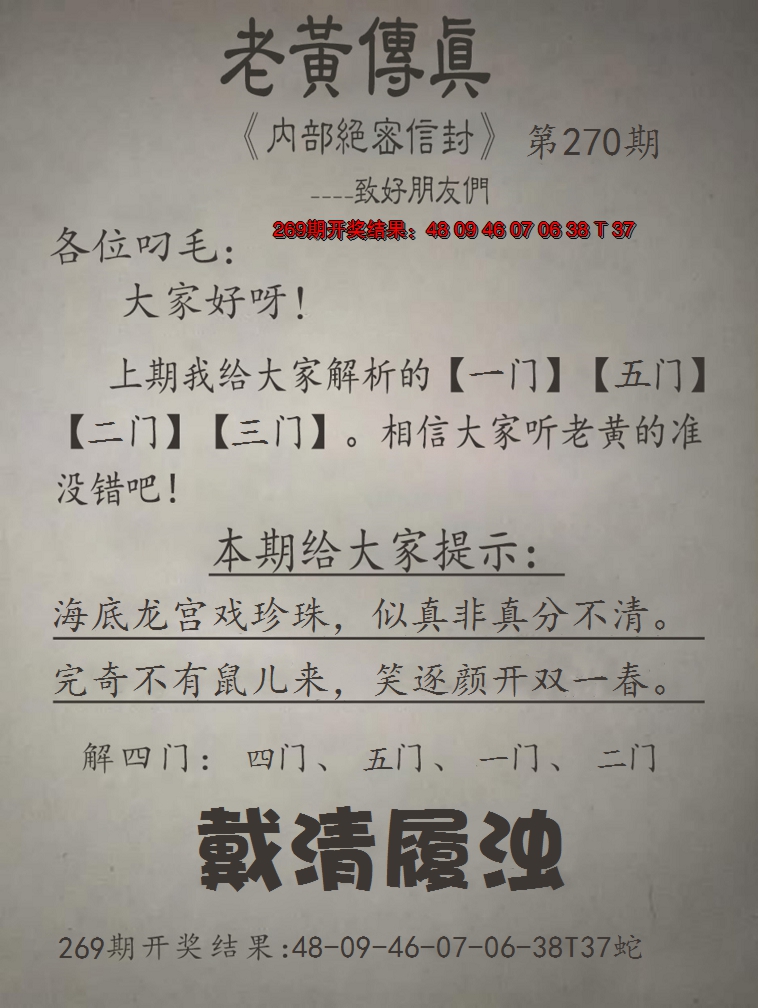 老黃傳眞
《内部絕密信封》 第270期
----致好朋友們
269期开奖结果：48 09 46 07 06 38 T 37
各位叼毛：
大家好呀！
上期我给大家解析的【一门】【五门】
【二门】【三门】。相信大家听老黄的准
没错吧！
本期给大家提示：
海底龙宫戏珍珠，似真非真分不清。
完奇不有鼠儿来，笑逐颜开双一春。
解四门： 四门、 五门、 一门、 二门
戴清履浊
269期开奖结果:48-09-46-07-06-38T37蛇